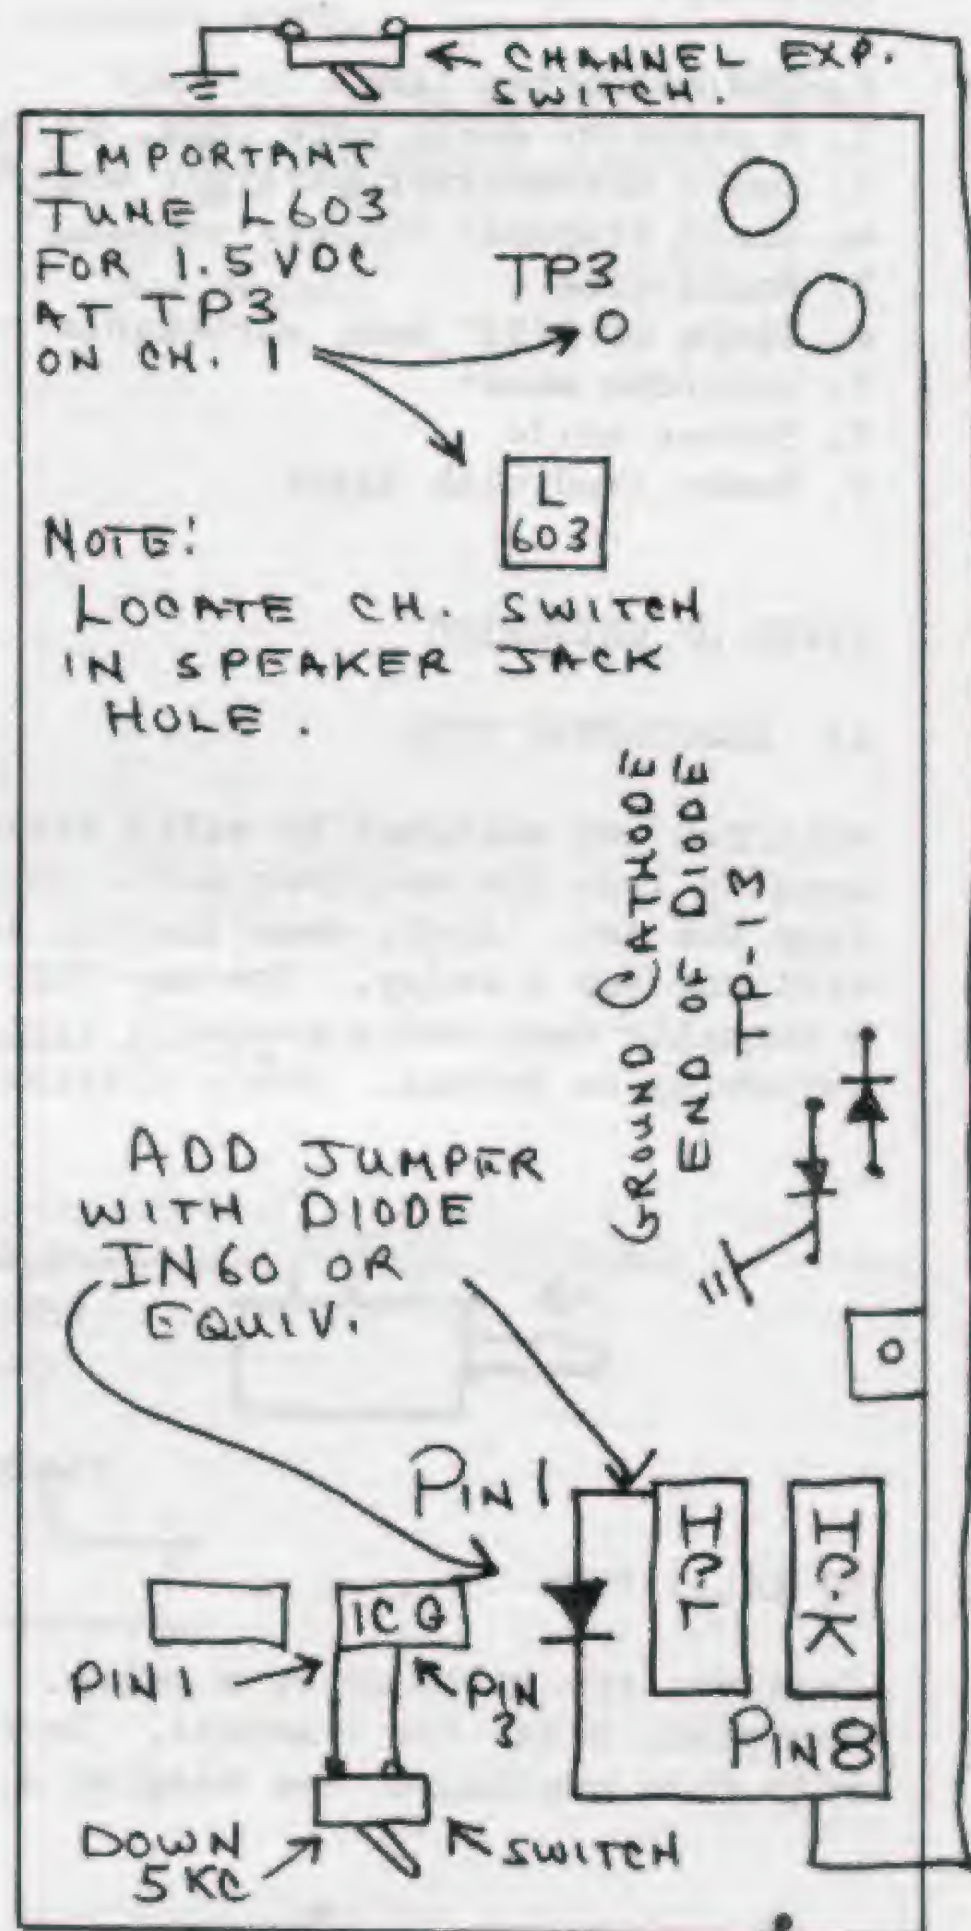 ← CHANNEL EXP.
SWITCH.
IMPORTANT
TUNE L603
FOR 1.5 VDC
AT TP3
ON CH. 1
TP3
L
603
NOTE:
LOCATE CH. SWITCH
IN SPEAKER JACK
HOLE.
GROUND CATHODE
END OF DIODE
TP-13
ADD JUMPER
WITH DIODE
IN60 OR
EQUIV.
PIN 1
IC-L
IC-K
IC G
PIN 1
PIN
3
PIN 8
DOWN
5 KC
SWITCH